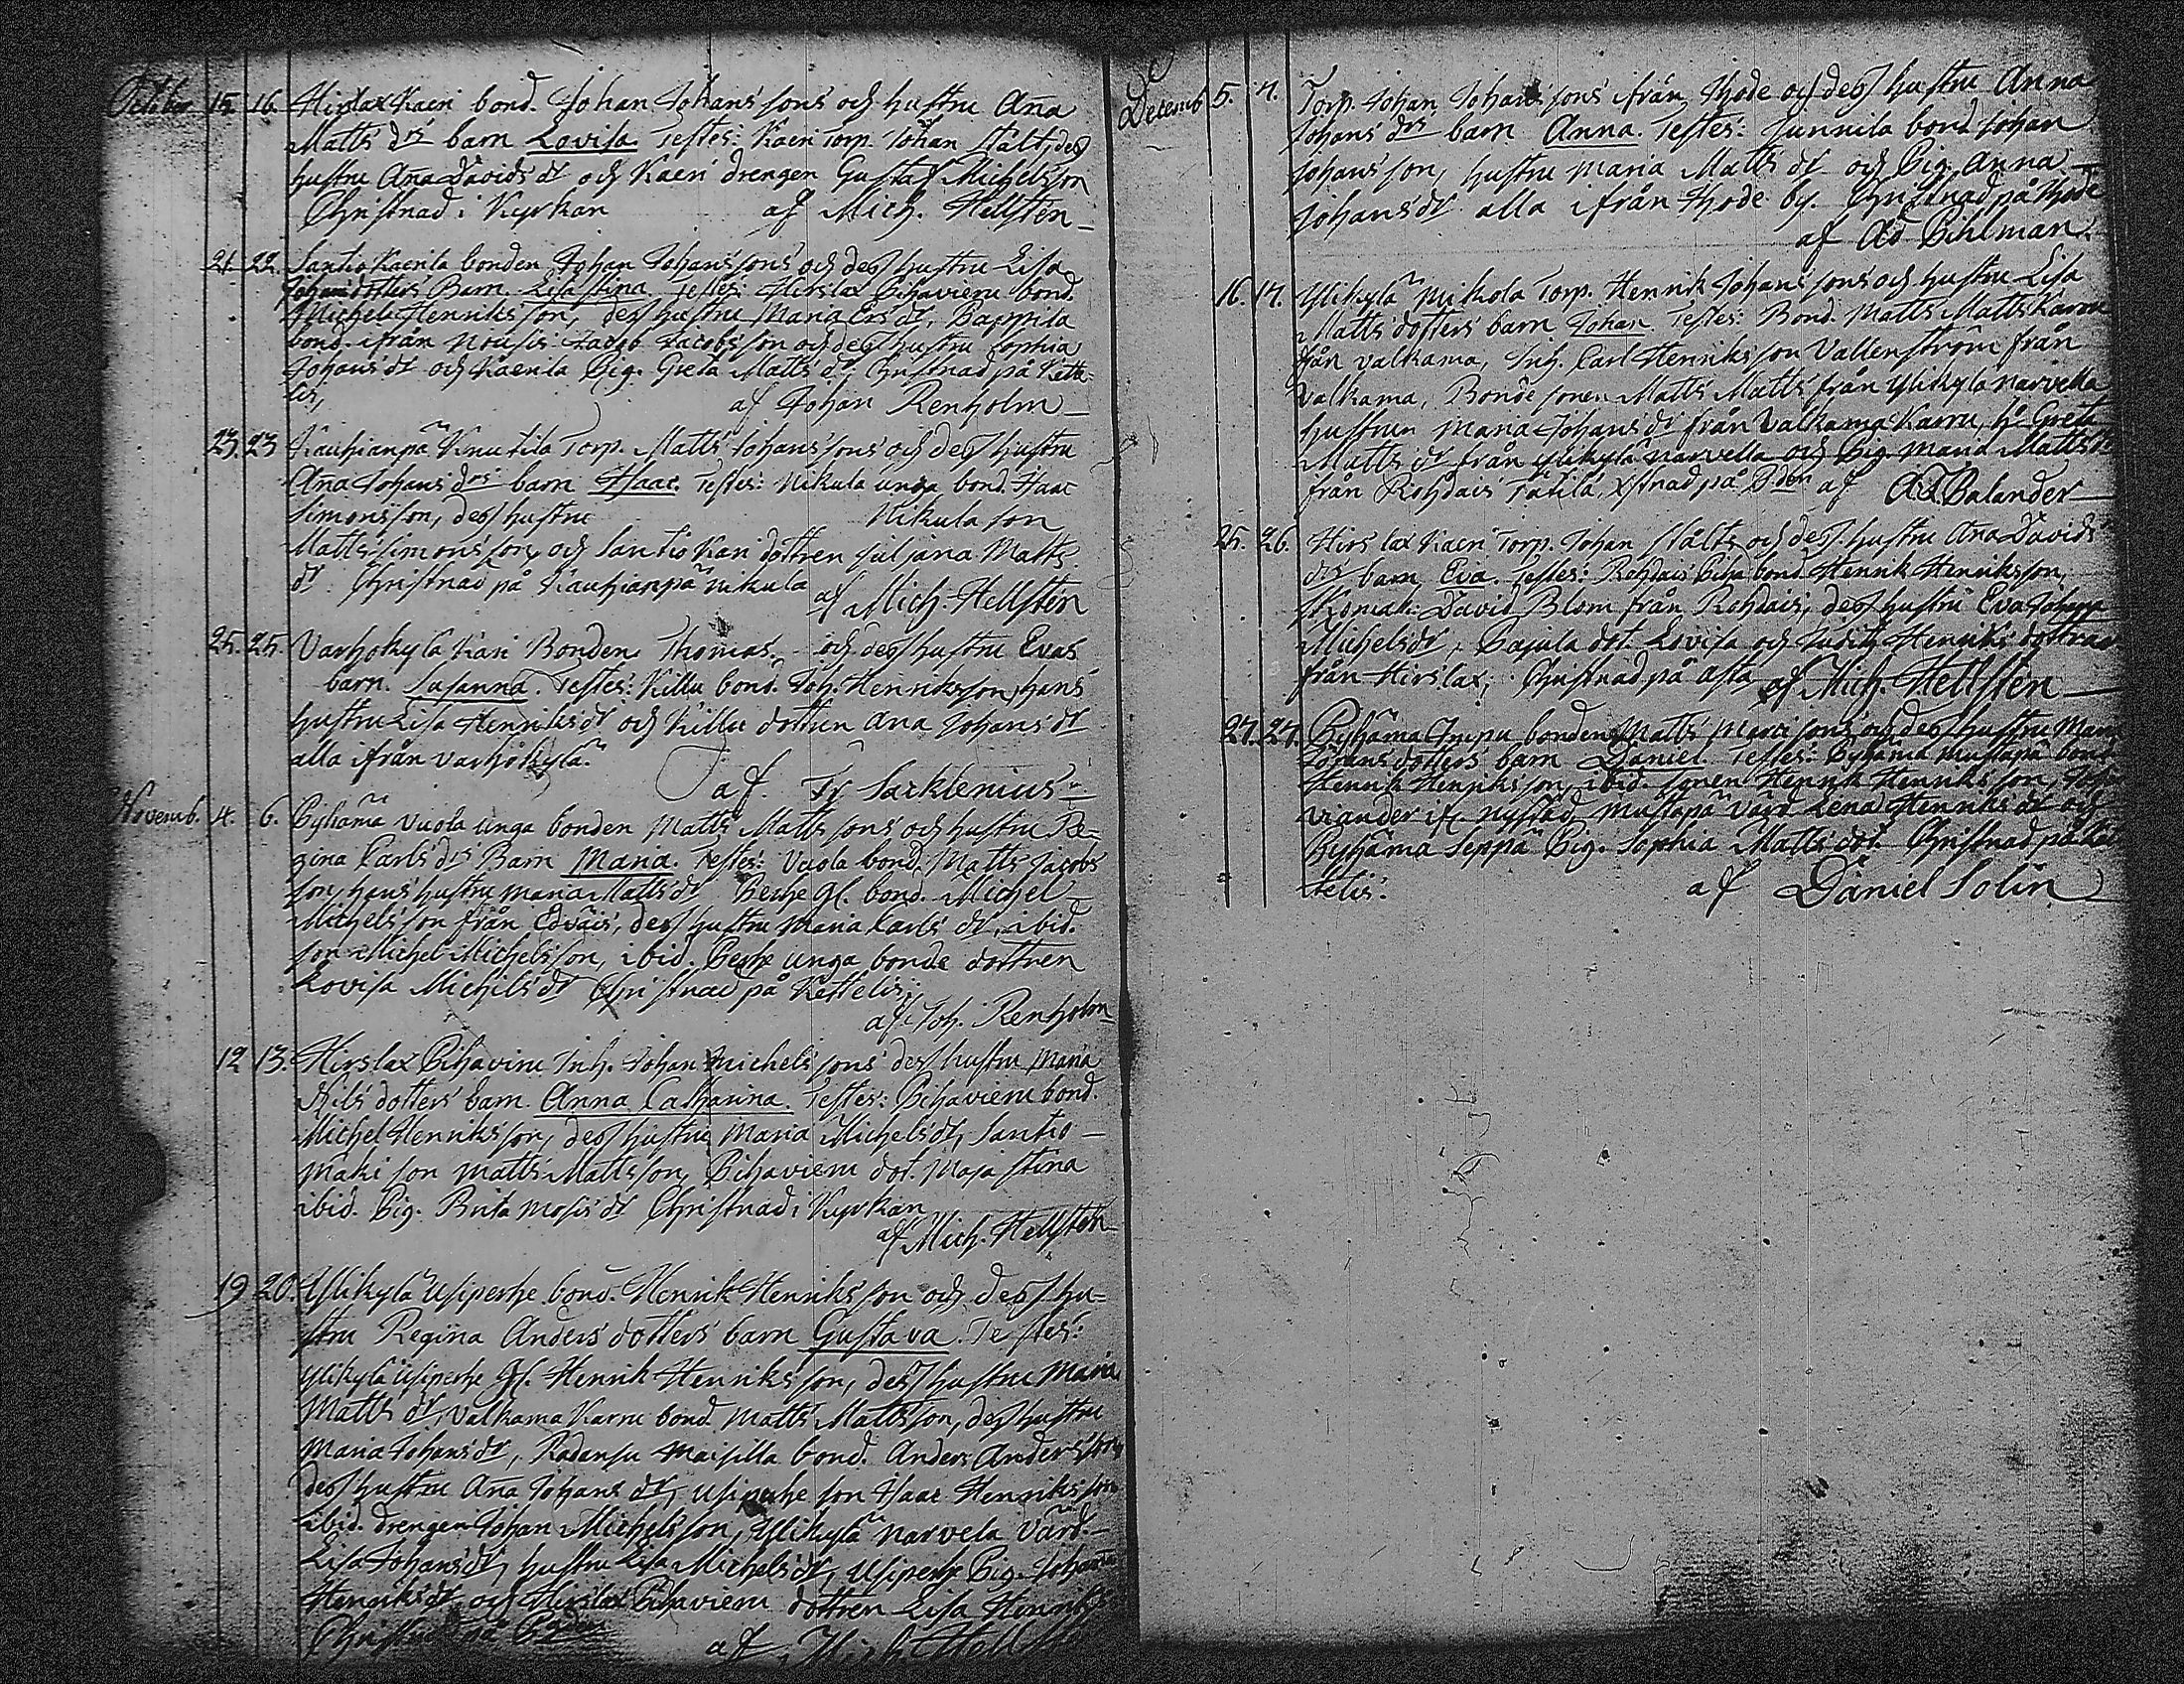 October 15. 16. Hirslax Kaeri bond. Johan Johans sons och hustru Anna
Matts drs barn Lovisa. Testes: Kaeri Torp. Johan Stålt, des
hustru Anna Davids dr och Kaeri drengen Gustaf Michelsson
Christnad i Kyrkan af Mich. Hellsten
21. 22. Santio Kaenla bonden Johan Johans sons och des hustru Lisa
Johansdotters Barn Lisa Stina Testes: Hirslax Pihavieru bond.
Michel Henriksson, des hustru Maria Ers dr, Pappila
bond. ifrån Nousis Jacob Jacobsson och des hustru Sophia
Johans dr och Kaenla Pig. Greta Matts dr. Christnad på Kette-
lis, af Johan Renholm
23. 23 Kauhianpä Knutila Torp. Matts Johans sons och des hustru
Anna Johans drs barn Isaac. Testes: Nikula unga bond. Isaac
Simonsson, des hustru Nikula son
Matts Simonsson, och Santio Kari dottren Juljana Matts
dr. Christnad på Kauhianpä Nikula
af Mich. Hellsten
25. 25. Varhokylä Kari Bonden Thomas och des hustru Evas
barn. Susanna. Testes: Killu bond. Joh. Henriksson, hans
hustru Lisa Henriks dr och Killu dottren Ana Johans dr
alla ifrån Varhokylä.
af. Fr Sacklenius
Novemb. 4. 6. Pyhämä Vuola unga bonden Matts Matts sons och hustru Re-
gina Carls drs Barn Maria. Testes: Vuola bond. Matts Jacobs
son, hans hustru Maria Matts dr Perhe gl. bond. Michel
Michelsson från Edväis, des hustru Maria Carls dr, ibid.
son Michel Michelsson, ibid. Perhe unga bonde dottren
Lovisa Michels dr Christnad på Kettelis,
af Joh. Renholm
12 13. Hirslax Pihaviru Inh. Johan Michels sons des hustru Maria
Nils dotters barn. Anna Catharina. Testes: Pihavieru bond.
Michel Henriksson, des hustru Maria Michels dr, Santio
Mäki son Matts Mattsson, Pihavieru dot. Maja Stina
ibid. Pig. Brita Mosis dr Christnad i Kyrkan
af Mich. Hellsten
19 20. Ylikylä Usiperhe bond. Henrik Henriksson och des hu-
stru Regina Anders dotters barn Gustava. Testes:
Ylikylä Usiperhe gl. Henrik Henriksson, des hustru Maria
Matts dr, Valkama Karru bond. Matts Mattsson, des hustru
Maria Johans dr, Radansu Maisilla bond. Anders Andersson
des hustru Anna Johans dr, Usiperhe son Isaac Henriksson
ibid. drengen Johan Michelsson, Ylikylä Narvela Värd.
Lisa Johans dr, hustru Lisa Michels dr, Usiperhe Pig. Johanna
Henriks dr och Hirslax Pihavieru dottren Lisa Henriks
Christnad på
af Mich Hellsten
Decemb 5. 7. Torp. Johan Johans sons ifrån Thode och des hustru Anna
Johans drs barn Anna. Testes: Junnila bond Johan
Johansson, hustru Maria Matts dr och Pig. Anna
Johans dr alla ifrån Thode by. Christnad på Thode
af Ad Pihlman.
16. 17. Ylikylä Mikola Torp. Henrik Johans sons och hustru Lisa
Matts dotters barn Johan. Testes: Bond. Matts Matts Karru
från Valkama, Inh. Carl Henriksson Vallenström från
Valkama, Bonde sonen Matts Matts från Ylikylä Narvella
hustrun Maria Johans dr från Valkama Karru, h. Greta
Matts dr från Ylikylä Narvella och Pig Maria Matts dr
från Rohdais Tätilä, Xstnad på af Balander
25. 26. Hirslax Kaeri Torp. Johan Stålts och des hustru Ana Davids
drs barn Eva. Testes: Rohdais Piha bond. Henrik Henriksson,
Skomak. David Blom från Rohdais, des hustru Eva Johanna
Michels dr, Pajula dot. Lovisa och Judith Henriks dottrar
från Hirslax; Christnad på asta af Mich. Hellsten
27. 27. Pyhämä Impu bonden Matts sons och des hustru Maria
Johans dotters barn Daniel. Testes: Pyhämä Mustapä bond
Henrik Henriksson, ibid. sonen Henrik Henriksson,
Viander ifr. Nystad, Mustapä Värd. Lena Henriks dr och
Pyhämä Seppä Pig. Sophia Matts dot. Christnad på Ket-
telis. af Daniel Solin